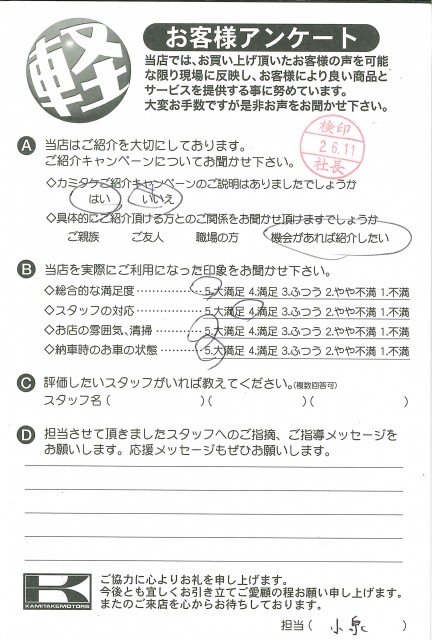 軽
お客様アンケート
当店では、お買い上げ頂いたお客様の声を可能
な限り現場に反映し、お客様により良い商品と
サービスを提供する事に努めています。
大変お手数ですが是非お声をお聞かせ下さい。
検印
26.11
社長
A 当店はご紹介を大切にしております。
ご紹介キャンペーンについてお聞かせ下さい。
◇カミタケご紹介キャンペーンのご説明はありましたでしょうか
はい いいえ
◇具体的にご紹介頂ける方とのご関係をお聞かせ頂けますでしょうか
ご親族 ご友人 職場の方 機会があれば紹介したい
B 当店を実際にご利用になった印象をお聞かせ下さい。
◇総合的な満足度……………5.大満足 4.満足 3.ふつう 2.やや不満 1.不満
◇スタッフの対応……………5.大満足 4.満足 3.ふつう 2.やや不満 1.不満
◇お店の雰囲気、清掃………5.大満足 4.満足 3.ふつう 2.やや不満 1.不満
◇納車時のお車の状態………5.大満足 4.満足 3.ふつう 2.やや不満 1.不満
C 評価したいスタッフがいれば教えてください。(複数回答可)
スタッフ名( )( )( )
D 担当させて頂きましたスタッフへのご指摘、ご指導メッセージを
お願いします。応援メッセージもぜひお願いします。
K
KAMITAKEMOTORS
ご協力に心よりお礼を申し上げます。
今後とも宜しくお引き立てご愛顧の程お願い申し上げます。
またのご来店を心からお待ちしております。
担当( 小泉 )